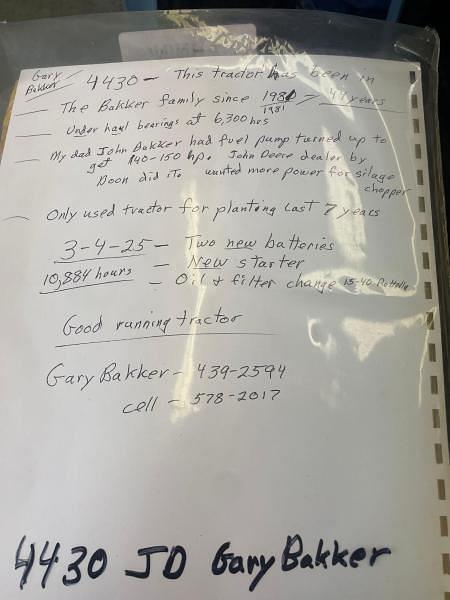 Gary Bakker
4430 - This tractor has been in
The Bakker family since 1981 > 44 years
1981
Under haul bearings at 6,300 hrs
My dad John Bakker had fuel pump turned up to
get 140-150 hp. John Deere dealer by
Doon did it. wanted more power for silage
chopper
Only used tractor for planting last 7 years
3-4-25 - Two new batteries
10,884 hours - New starter
- Oil & filter change 15-40 Rotella
Good running tractor
Gary Bakker - 439-2594
cell - 578-2017
4430 JD Gary Bakker